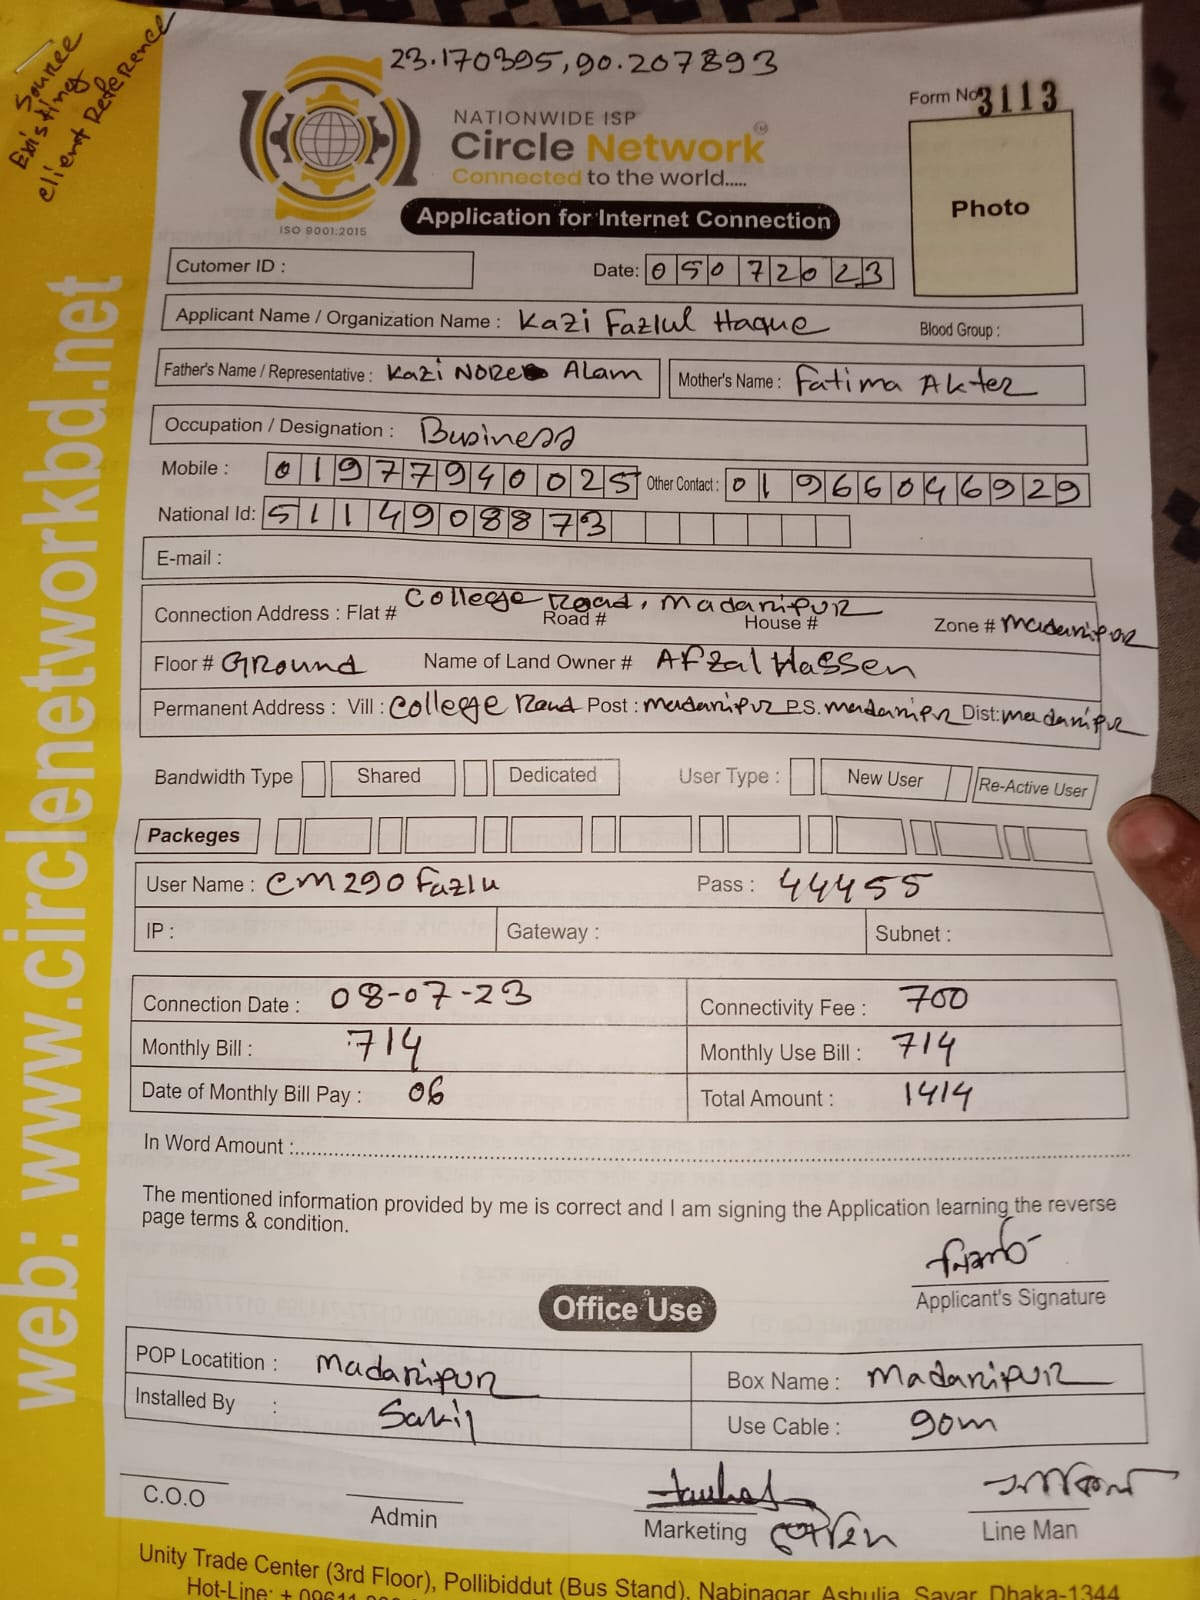 Source
Existing
client Reference
23.170395,90.207893
Form No 3113
NATIONWIDE ISP
Circle Network
Connected to the world.....
ISO 9001:2015
Application for Internet Connection
Photo
Cutomer ID :
Date: 05072023
Applicant Name / Organization Name : Kazi Fazlul Haque Blood Group :
Father's Name / Representative : Kazi NORE Alam Mother's Name : Fatima Akter
Occupation / Designation : Business
Mobile : 01977940025 Other Contact : 01966046929
National Id: 5114908873
E-mail :
Connection Address : Flat # College Road, Madaripur Road # House # Zone # Madaripur
Floor # Ground Name of Land Owner # AFzal Hassen
Permanent Address : Vill : College Road Post : Madaripur P.S. Madaripur Dist: Madaripur
Bandwidth Type Shared Dedicated User Type : New User Re-Active User
Packeges
User Name : CM290Fazlu Pass : 44455
IP : Gateway : Subnet :
Connection Date : 08-07-23 Connectivity Fee : 700
Monthly Bill : 714 Monthly Use Bill : 714
Date of Monthly Bill Pay : 06 Total Amount : 1414
In Word Amount :
The mentioned information provided by me is correct and I am signing the Application learning the reverse
page terms & condition.
Applicant's Signature
Office Use
POP Locatition : Madaripur Box Name : Madaripur
Installed By : Sakil Use Cable : 90m
C.O.O Admin Marketing Line Man
Unity Trade Center (3rd Floor), Pollibiddut (Bus Stand), Nabinagar, Ashulia, Savar, Dhaka-1344
Hot-Line: + 09611
web: www.circlenetworkbd.net